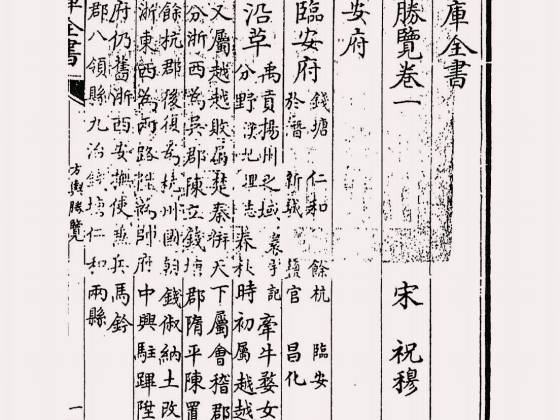 庫全書
勝覽卷一
宋 祝穆
安府
臨安府 錢塘 仁和 餘杭 臨安
於潛 新城 鹽官 昌化
沿革 禹貢揚州之域 牽牛婺女
分野 漢地理志 春秋時初屬越
又屬越越敗屬楚秦併天下屬會稽郡
分浙西為吳郡陳立錢塘郡隋平陳置
餘杭郡後復為杭州國朝錢俶納土改
浙東西為兩路 帥府中興駐蹕陞
府仍舊浙西安撫使兼兵馬鈐
郡八領縣九治錢塘仁和兩縣
庫全書
方輿勝覽
一